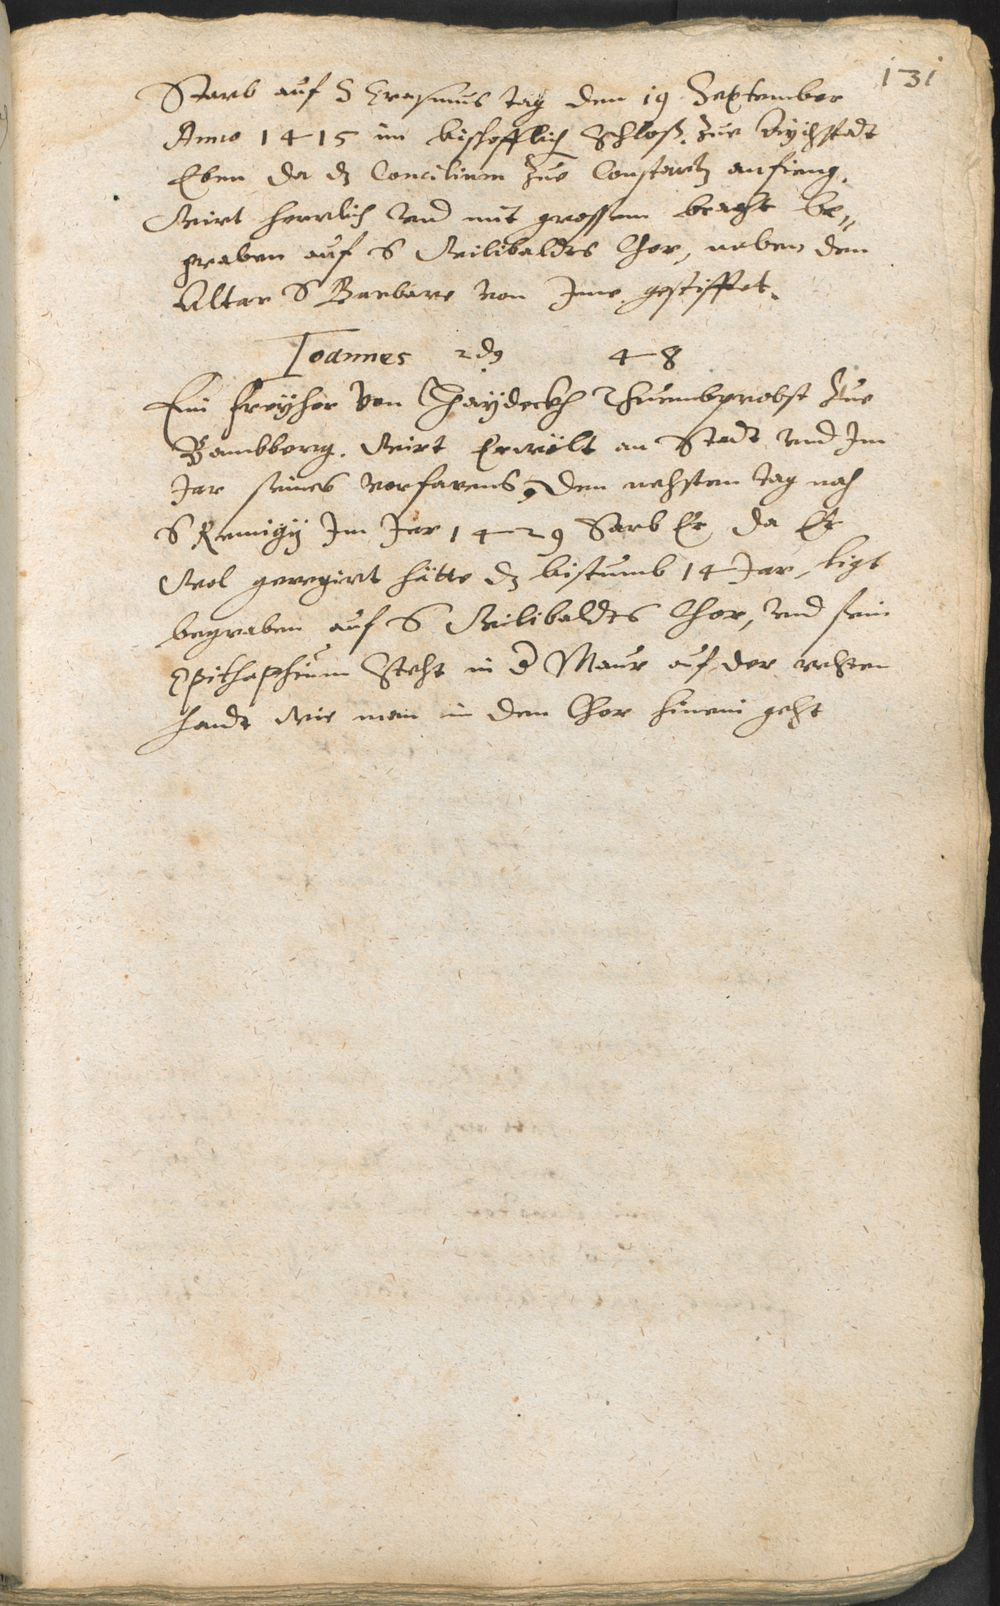 131
Starb auf S Erasmus tag den 19 September
Anno 1415 im bischofflich Schloß zue Aychstadt
Eben da dz Concilium zue Constantz anfieng.
Wirt herrlich vnd mit grossem bracht be„
graben auf S Wilibaldes Chor, neben den
Altar S Barbare von Jme gestifftet.
Ioannes 2dg 48
Ein freyher von Haydeckh Thuembprobst zue
Bambberg. Wirt Erwölt an Stadt vnd Jm
Jar seines vorfarens, Den nehsten tag nach
S Remigij Jm Jar 1429 Sarb Er da Er
Wol geregirt hätte dz bistumb 14 Jar, ligt
begraben auf S Wilibaldes Chor, vnd sein
Epithaphium Steht in d Maur auf der rechten
handt wie man in den Chor hinein geht